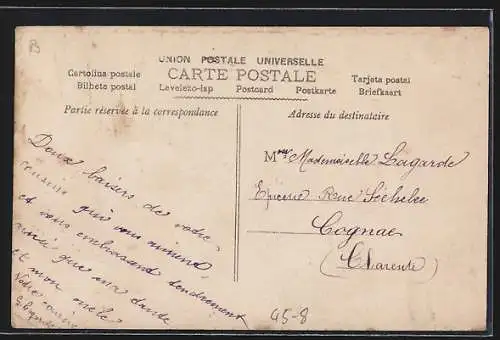 UNION POSTALE UNIVERSELLE
CARTE POSTALE
Cartolina postale
Tarjeta postal
Bilhete postal
Levelezo-lap
Postcard
Postkarte
Briefkaart
Partie réservée à la correspondance
Adresse du destinataire
Doux baisers de votre
cousine qui vous aiment
et vous embrassent tendrement
ainsi que ma tante
et mon oncle
Votre cousine
Mademoiselle Lagarde
Epicerie Rue
Cognac
(Charente)
95-8